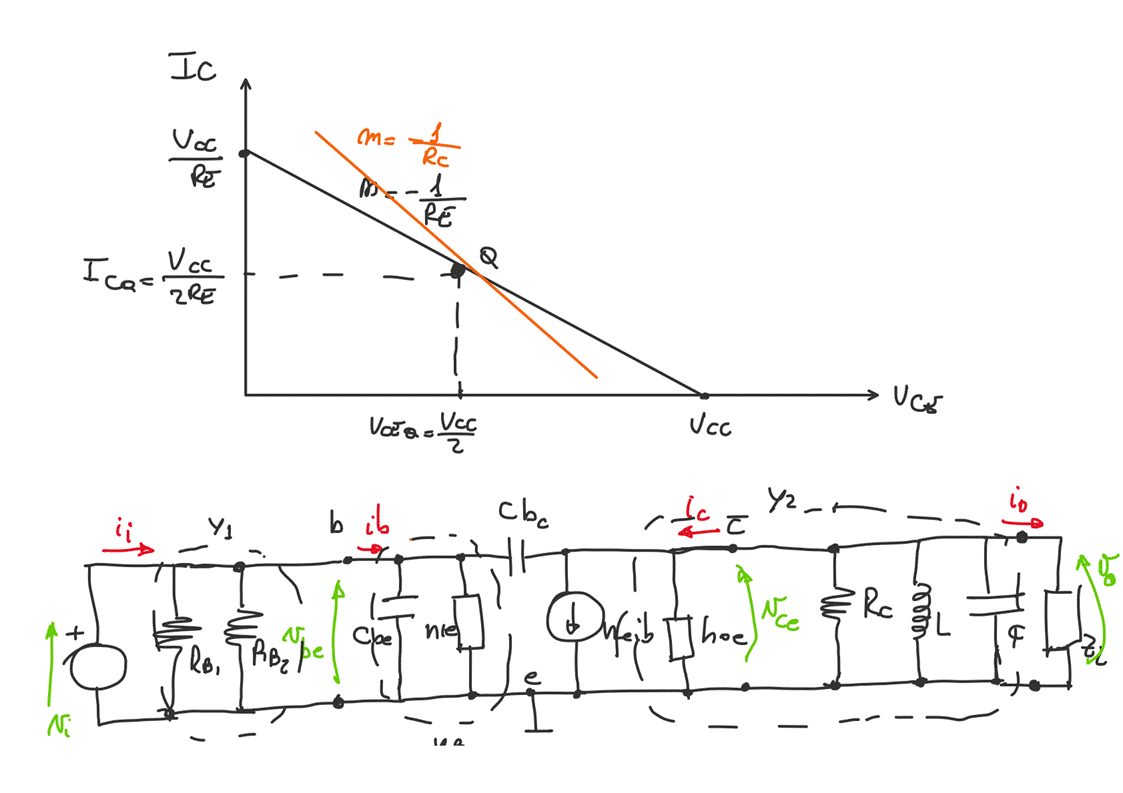 IC
VCC/RE
m = -1/RC
m = -1/RE
Q
ICQ = VCC/2RE
VCEQ = VCC/2
VCC
VCE
ii
y1
b
ib
Cbc
ic
c
y2
io
+
vi
RB1
RB2
vbe
Cbe
hie
e
hfeib
hoe
vce
RC
L
C
ZL
vo